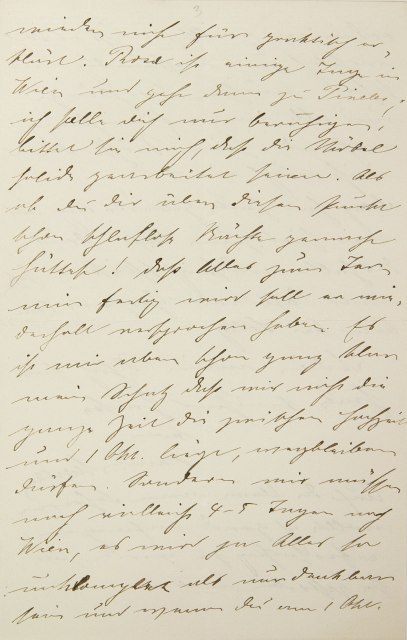 3
würden nicht für praktisch er-
klärt. Rosa ist einige Tage in
Wien und geht dann zu
ich solle dich nur beruhigen,
bittet sie mich, daß die Möbel
solid gearbeitet seien. Als
ob du dir über diesen Punkt
schon schlaflose Nächte gemacht
hättest! Daß Alles zum Ter-
min fertig wird soll er wie-
derholt versprochen haben. Es
ist mir aber schon ganz klar
mein Schatz daß wir nicht die
ganze Zeit die zwischen Hochzeit
und 1 Okt. liegt, wegbleiben
dürfen. Sondern wir müssen
nach vielleicht 4-5 Tagen nach
Wien, es wird ja Alles so
unkomplet als nur denkbar
sein und wenn du am 1 Okt.